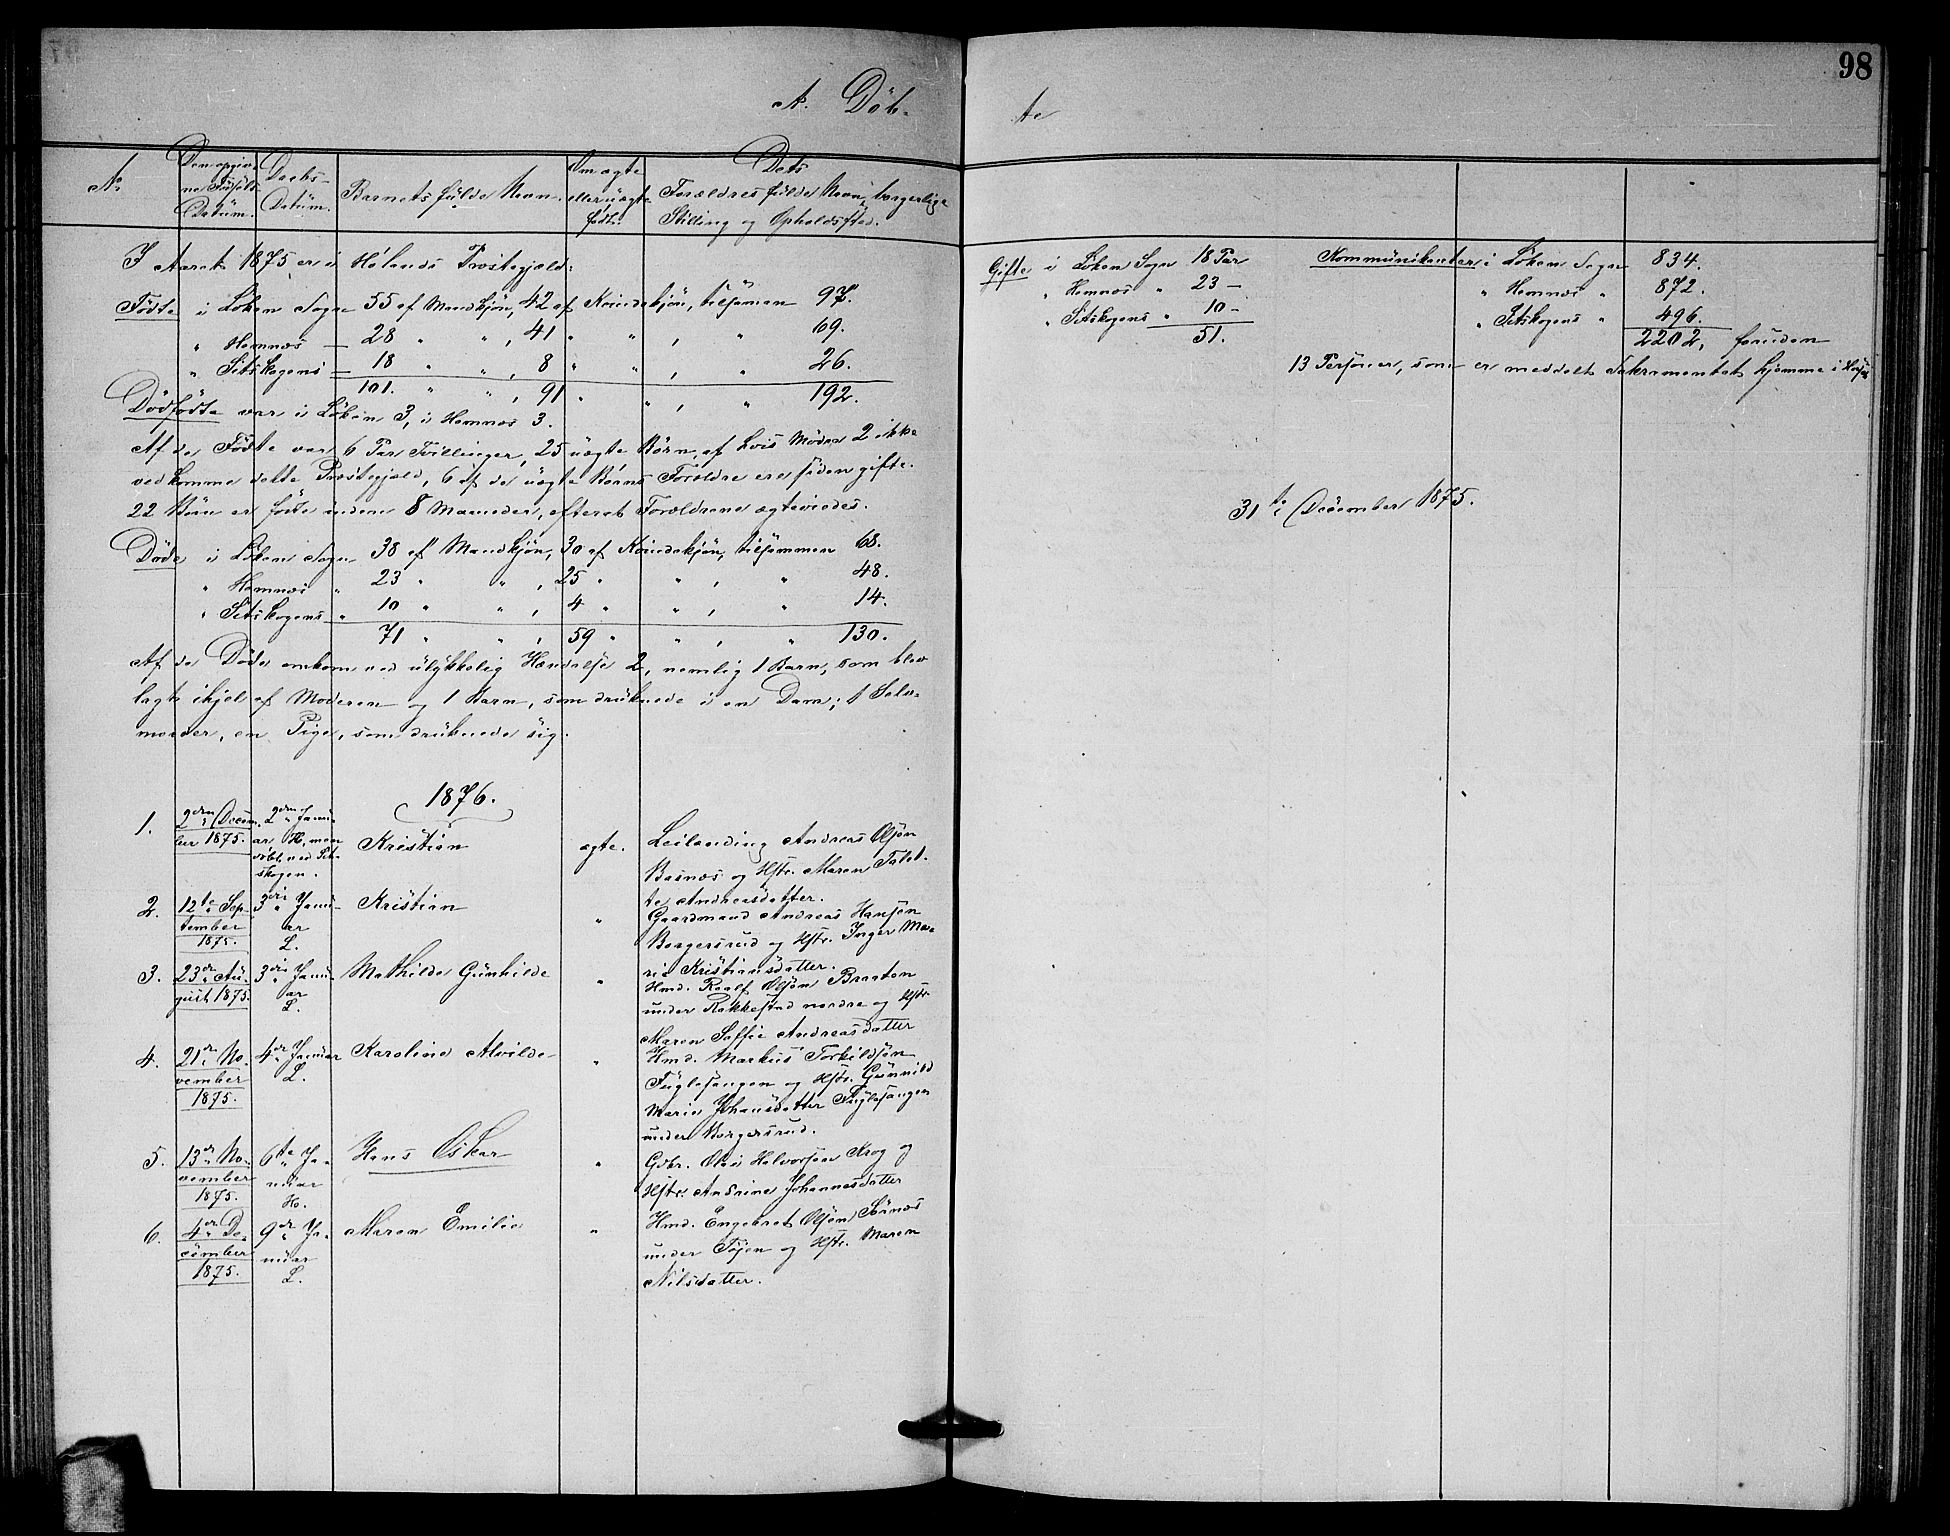 98
A. Döb-
te
No
Den opgiv-
ne Födsels-
Datüm.
Daabs-
Datüm.
Barnets fülde Navn.
Om ægte
eller uægte
født.
Dets
Forældres fülde Navn, borgerlige
Stilling og Opholdssted.
I Aaret 1875 er i Hølands Præstegjeld:
Fødte i Løken Sogn 55 af Mandkjön, 42 af Kvindekjön, tilsammen 97.
" Hemnæs — 28 " " , 41 " " , " 69.
" Sitskogens — 18 " " , 8 " " , " 26.
101. " " , 91 " " , " 192.
Dödfødte var i Løken 3, i Hemnæs 3.
Af de Fødte var 6 Par Tvillinger, 25 uægte Børn, af hvis Mødre 2 ikke
vedkomme dette Præstegjeld, 6 af de uægte Børns Forældre ere siden gifte.
22 Børn er födte inden 8 Maaneder, efterat Forældrene ægteviedes.
Döde i Løken Sogn 38 af Mandkjön, 30 af Kvindekjön, tilsammen 68.
" Hemnæs " 23 " " , 25 " " , " 48.
" Sitskogens " 10 " " , 4 " " , " 14.
71 " " , 59 " " , " 130.
Af de Döde omkom ved ulykkelig Hændelse 2, nemlig 1 Barn, som blev
lagt ihjel af Moderen og 1 Barn, som druknede i en Dam; 1 Selv-
morder, en Pige, som druknede sig.
1876.
1. 2den Decem-
ber 1875.
2den Janu-
ar H. men
døbt ved Sit-
skogen.
Kristian
ægte.
Leilænding Andreas Olsen
Basnæs og Hstr. Maren Talet-
te Andreasdatter.
2. 12te Sep-
tember
1875.
3die Janu-
ar
L.
Kristian
"
Gaardmand Andreas Hansen
Borgersrud og Hstr. Inger Ma-
rie Kristiansdatter.
3. 23de Au-
gust 1875.
3die Janu-
ar
L.
Mathilde Günhilde
"
Hmd. Roalf Olsen Braaten
under Rakkestad nordre og Hstr.
Maren Soffie Andreasdatter
4. 21de No-
vember
1875.
4de Januar
L.
Karoline Alvilde
"
Hmd. Markus Torkildsen
Füglesangen og Hstr. Günnild
Marie Johansdatter Füglesangen
under Borgersrud.
5. 13de No-
vember
1875.
6te Ja-
nuar
H.
Hans Oskar
"
Gdbr. Olaus Halvorsen Krog og
Hstr. Andrine Johannesdatter
6. 4de De-
cember
1875.
9de Ja-
nuar
L.
Maren Emilie
"
Hmd. Engebret Olsen
under Töien og Hstr. Maren
Nilsdatter.
Gifte i Løken Sogn 18 Par
" Hemnæs " 23 —
" Sitskogens " 10 —
51.
Kommunikanter i Løken Sogn 834.
" Hemnæs " 872.
" Sitskogens " 496.
2202, foruden
13 Personer, som er meddelt Sakramentet hjemme i Huset
31te December 1875.